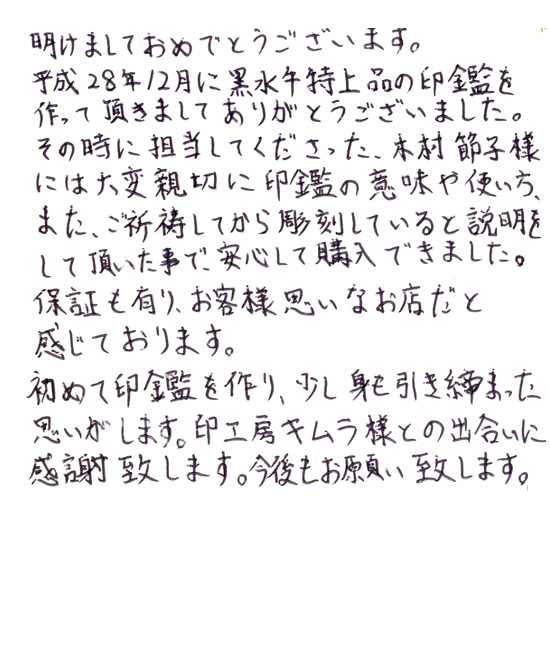 明けましておめでとうございます。
平成28年12月に黒水牛特上品の印鑑を
作って頂きましてありがとうございました。
その時に担当してくださった、木村節子様
には大変親切に印鑑の意味や使い方、
また、ご祈祷してから彫刻していると説明を
して頂いた事で、安心して購入できました。
保証も有り、お客様思いなお店だと
感じております。
初めて印鑑を作り、少し身も引き締まった
思いがします。印工房キムラ様との出合いに
感謝致します。今後もお願い致します。